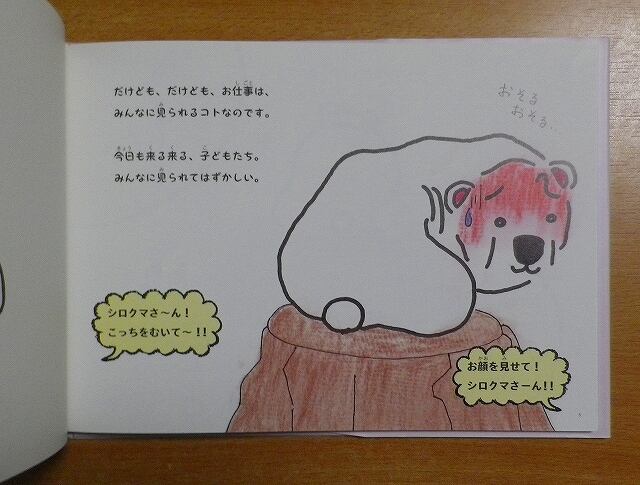 だけども、だけども、お仕事は、
みんなに見られるコトなのです。
今日も来る来る、子どもたち。
みんなに見られてはずかしい。
おそる
おそる…
シロクマさ〜ん！
こっちをむいて〜！！
お顔を見せて！
シロクマさーん！！
5